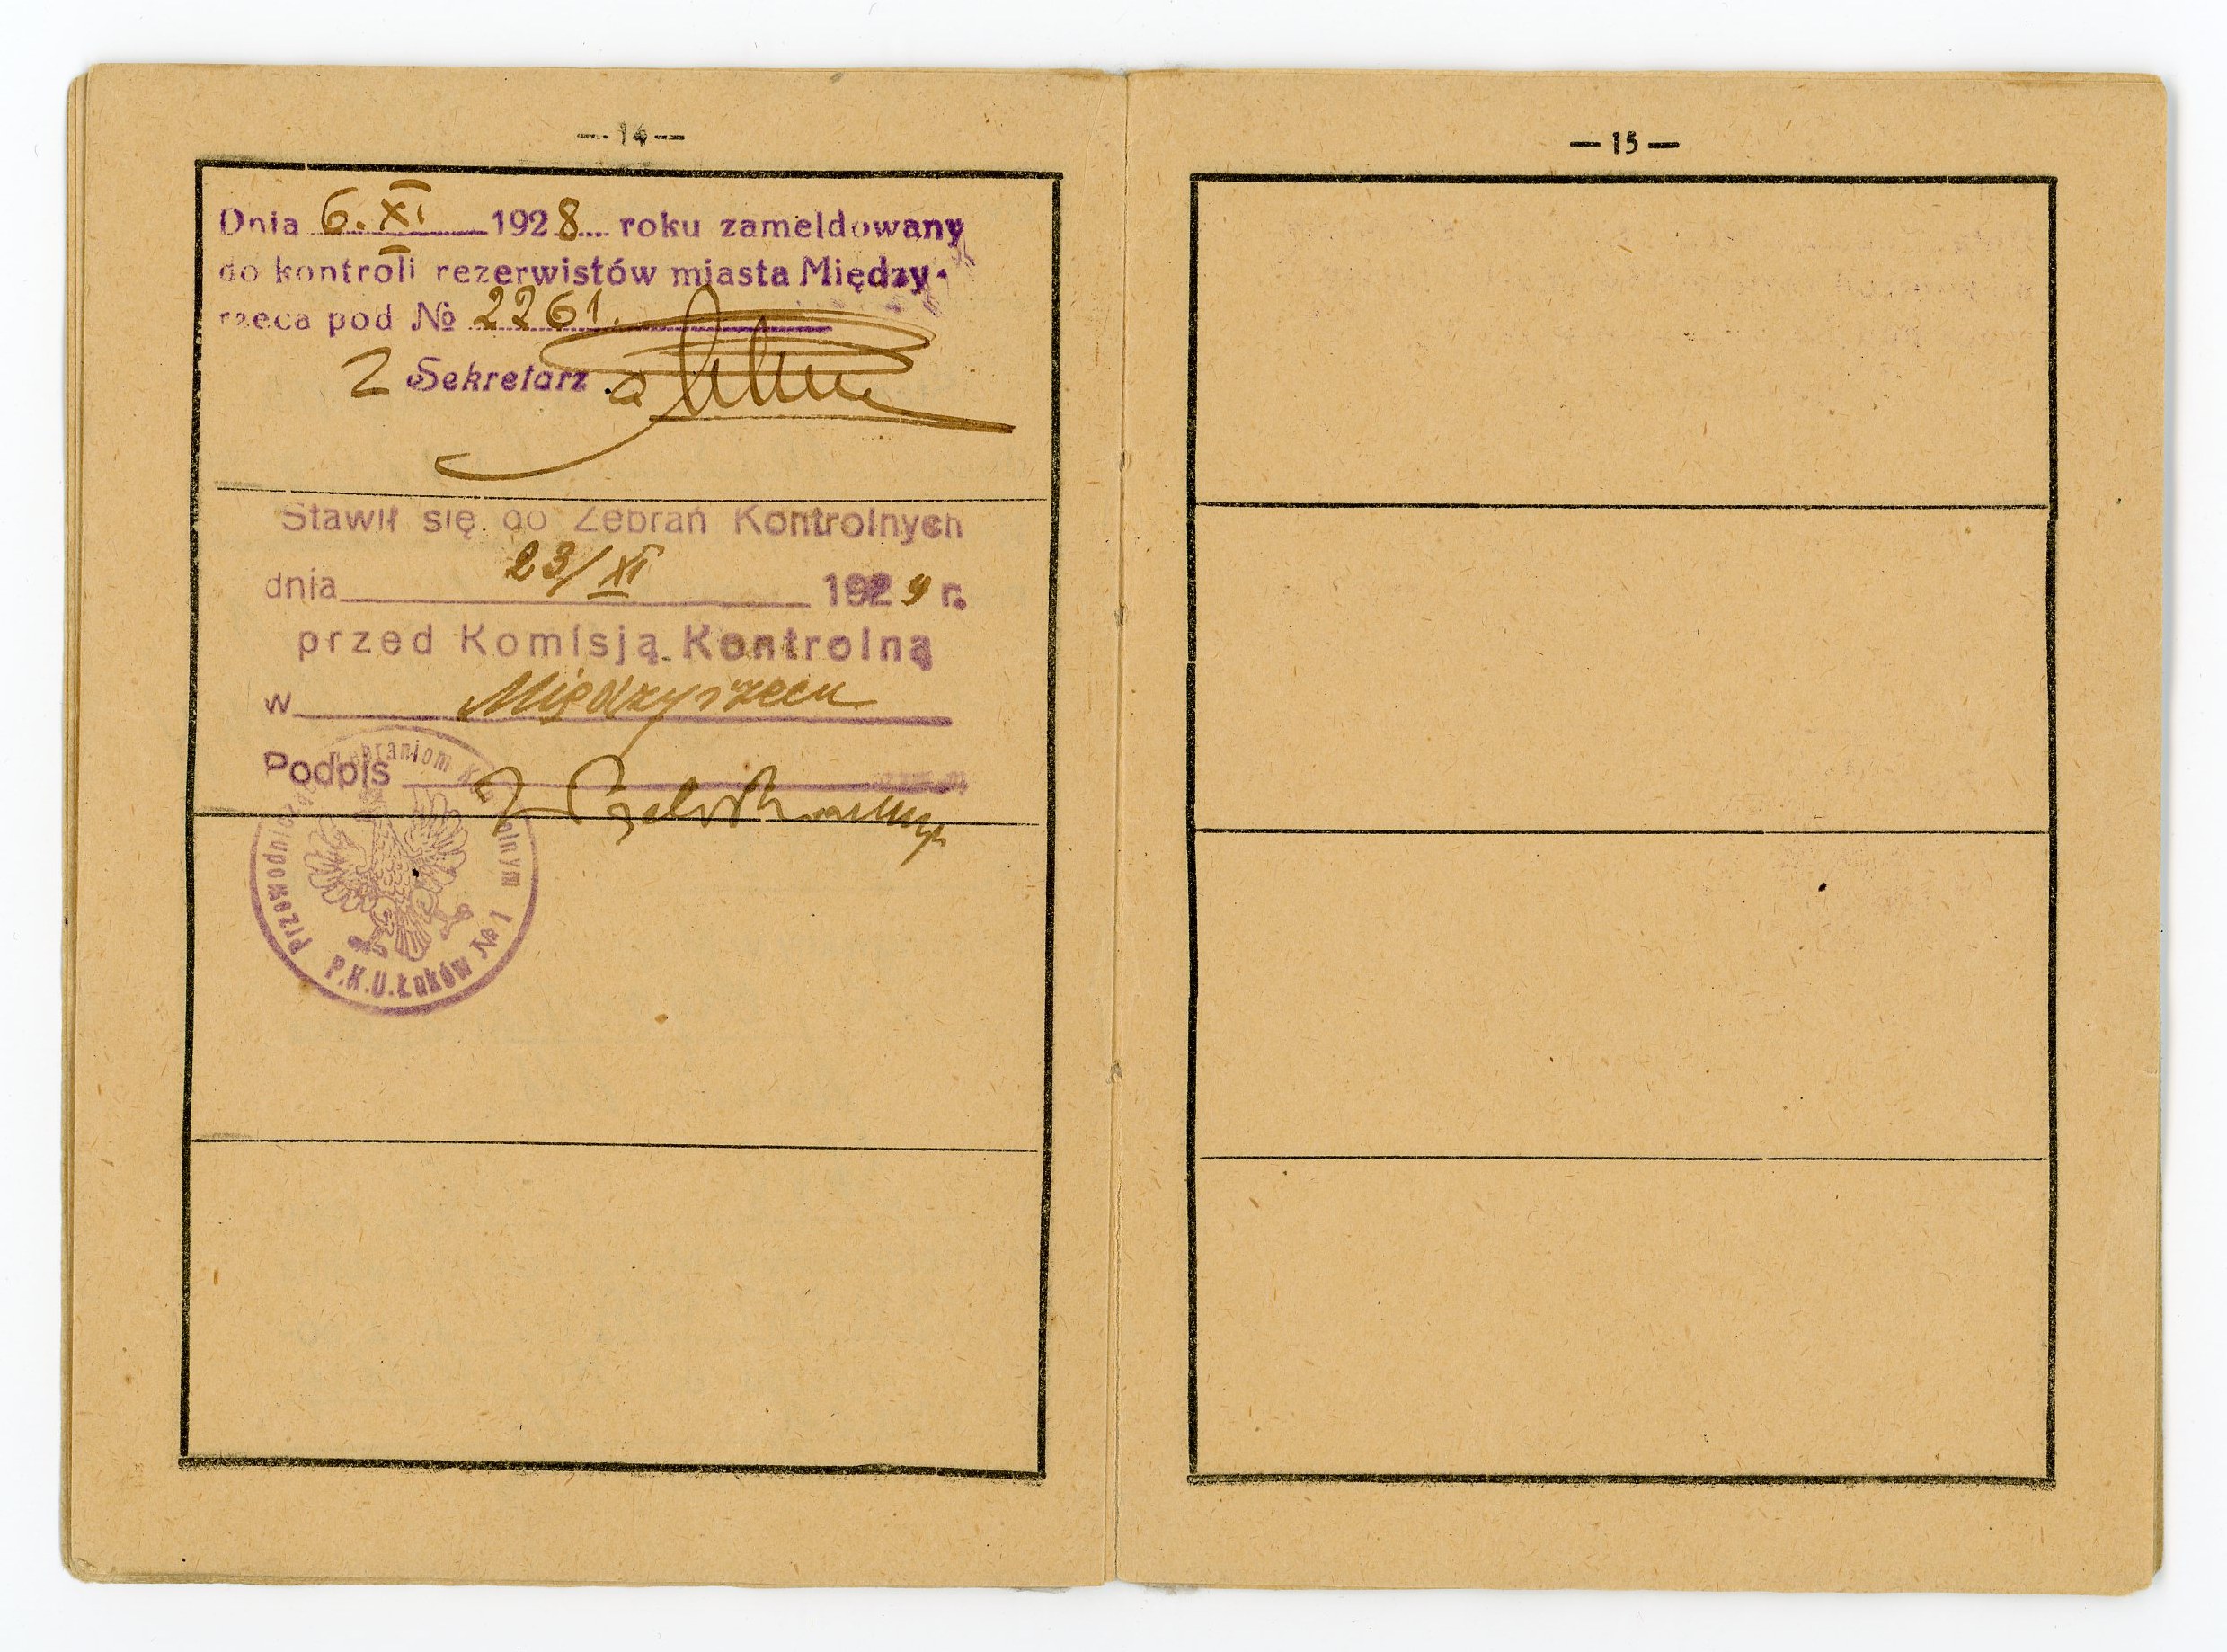 — 14 —
Dnia 6. XI 1928 roku zameldowany
do kontroli rezerwistów miasta Między-
rzeca pod № 2261.
Sekretarz
Stawił się do Zebrań Kontrolnych
dnia 23/XI 1929 r.
przed Komisją Kontrolną
w Międzyrzecu
Podpis
P.K.U. Łuków № 1
— 15 —